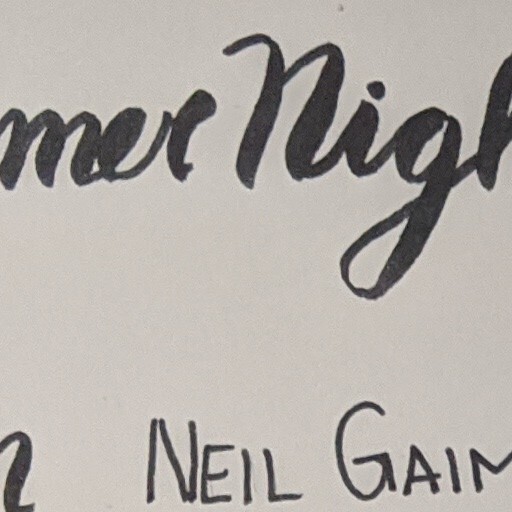 mer Nigh
NEIL GAIM